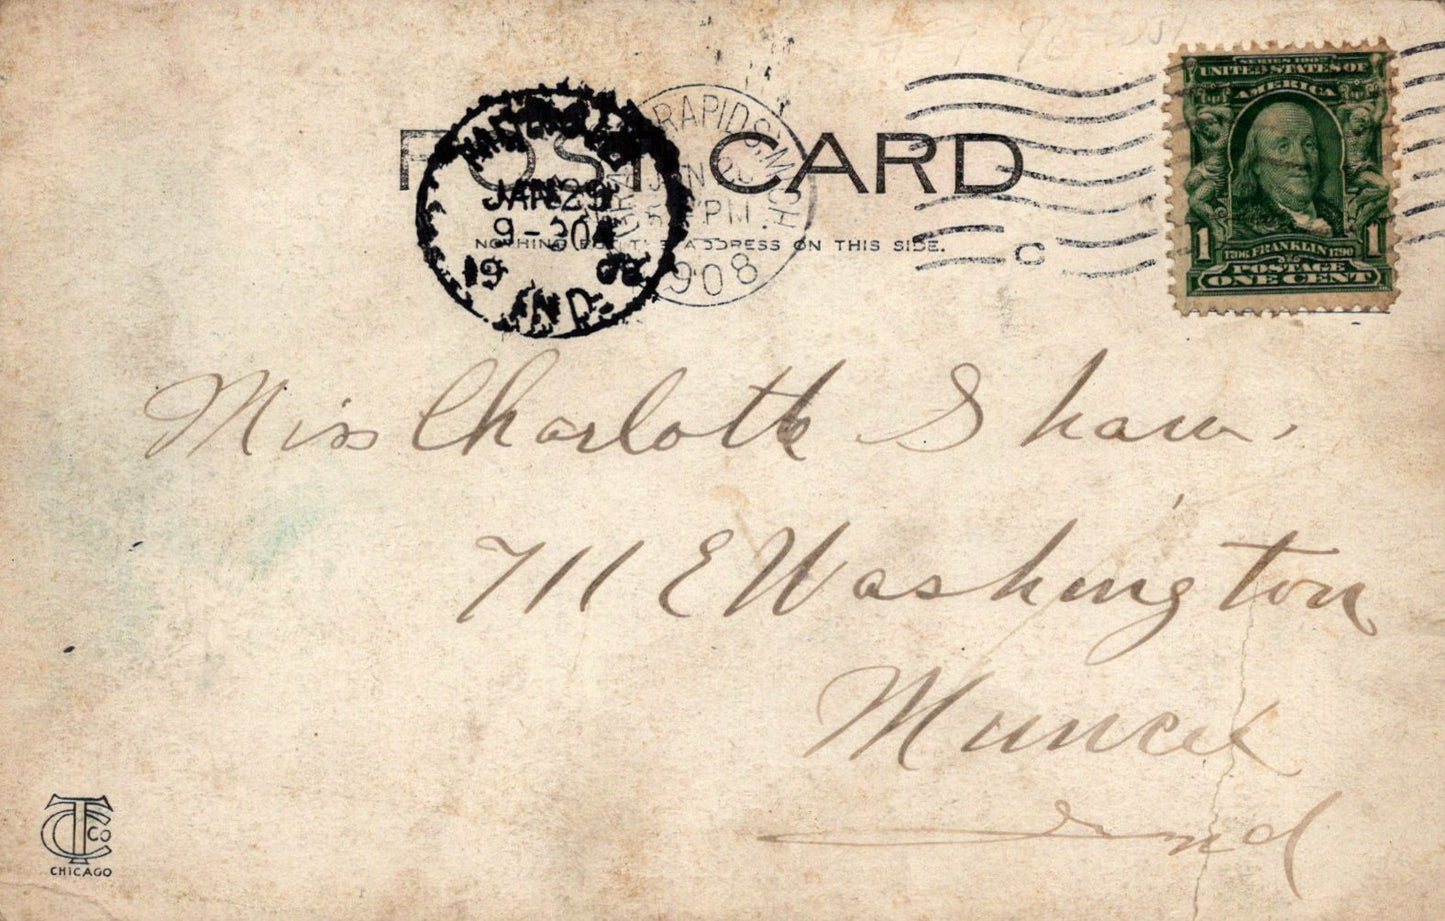 POST CARD
NOTHING BUT THE ADDRESS ON THIS SIDE.
RAPIDS, MICH.
JAN 28
PM
1908
JAN 29
9-30A
1908
IND.
C
SERIES 1902
UNITED STATES OF
AMERICA
1 1706 FRANKLIN 1790 1
POSTAGE
ONE CENT
Miss Charlotte Shaw.
711 E Washington
Muncie
Ind
TC CO
CHICAGO